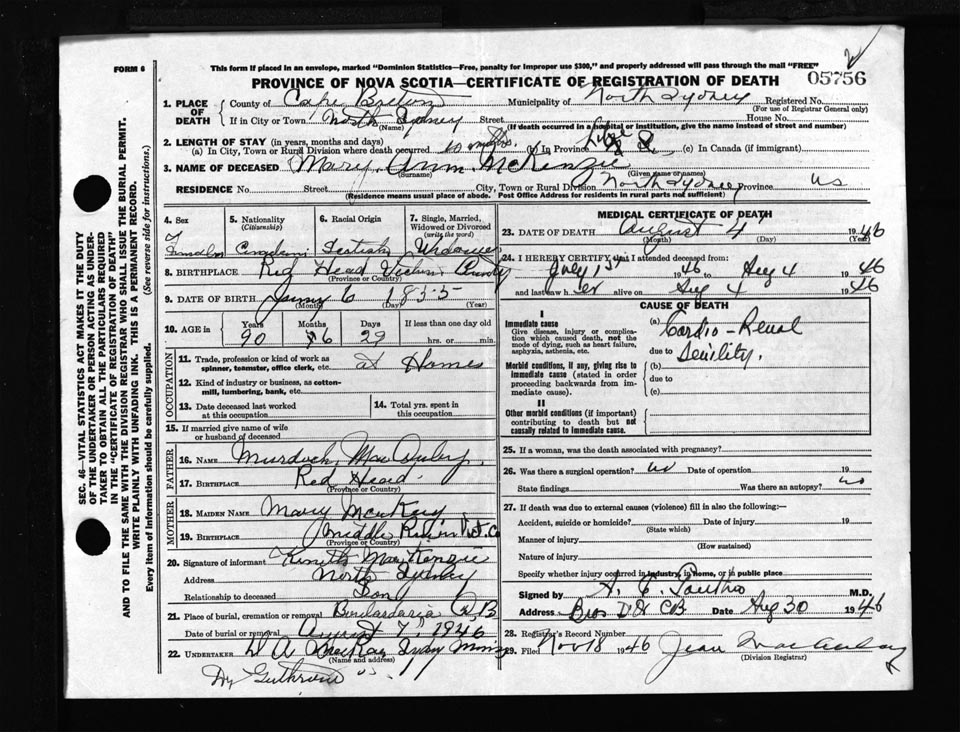 FORM 6
This form if placed in an envelope, marked "Dominion Statistics—Free, penalty for improper use $300," and properly addressed will pass through the mail "FREE"
PROVINCE OF NOVA SCOTIA—CERTIFICATE OF REGISTRATION OF DEATH
05756
SEC. 46—VITAL STATISTICS ACT MAKES IT THE DUTY
OF THE UNDERTAKER OR PERSON ACTING AS UNDER-
TAKER TO OBTAIN ALL THE PARTICULARS REQUIRED
IN THE "CERTIFICATE OF REGISTRATION OF DEATH"
AND TO FILE THE SAME WITH THE DIVISION REGISTRAR WHO SHALL ISSUE THE BURIAL PERMIT.
WRITE PLAINLY WITH UNFADING INK. THIS IS A PERMANENT RECORD.
Every item of Information should be carefully supplied. (See reverse side for instructions.)
1. PLACE OF DEATH
County of Cape Breton Municipality of North Sydney Registered No.
(For use of Registrar General only)
If in City or Town North Sydney Street House No.
(Name) (If death occurred in a hospital or institution, give the name instead of street and number)
2. LENGTH OF STAY (in years, months and days)
(a) In City, Town or Rural Division where death occurred 10 (b) In Province Life (c) In Canada (if immigrant)
3. NAME OF DECEASED Mary Ann McKenzie
(Surname) (Given name or names)
RESIDENCE No. Street City, Town or Rural Division North Sydney Province NS
(Residence means usual place of abode. Post Office Address for residents in rural parts not sufficient)
4. Sex
5. Nationality (Citizenship)
6. Racial Origin
7. Single, Married, Widowed or Divorced (write the word)
F
8. BIRTHPLACE Red Head Victoria County
(Province or Country)
9. DATE OF BIRTH 6
(Month) (Day) (Year)
10. AGE in Years Months Days If less than one day old
90 6 29 hrs. or min.
OCCUPATION
11. Trade, profession or kind of work as spinner, teamster, office clerk, etc. at Home
12. Kind of industry or business, as cotton-mill, lumbering, bank, etc.
13. Date deceased last worked at this occupation
14. Total yrs. spent in this occupation
15. If married give name of wife or husband of deceased
FATHER
16. NAME Murdoch
17. BIRTHPLACE Red Head
(Province or Country)
MOTHER
18. MAIDEN NAME Mary
19. BIRTHPLACE Middle River Vict. Co
(Province or Country)
20. Signature of informant Kenneth MacKenzie
Address North Sydney
Relationship to deceased Son
21. Place of burial, cremation or removal Boularderie C B
Date of burial or removal August 7, 1946
22. UNDERTAKER W A MacKay Sydney Mines
(Name and address)
NS
MEDICAL CERTIFICATE OF DEATH
23. DATE OF DEATH August 4 1946
(Month) (Day) (Year)
24. I HEREBY CERTIFY that I attended deceased from:
July 1st 1946 to Aug 4 1946
and last saw her alive on Aug 4 1946
CAUSE OF DEATH
I
Immediate cause
Give disease, injury or complication which caused death, not the mode of dying, such as heart failure, asphyxia, asthenia, etc.
(a) Cardio-Renal
due to Senility.
Morbid conditions, if any, giving rise to immediate cause (stated in order proceeding backwards from immediate cause).
(b)
due to
(c)
II
Other morbid conditions (if important) contributing to death but not causally related to immediate cause.
25. If a woman, was the death associated with pregnancy?
26. Was there a surgical operation? no Date of operation 19
State findings Was there an autopsy? no
27. If death was due to external causes (violence) fill in also the following:—
Accident, suicide or homicide? Date of injury 19
(State which)
Manner of injury
(How sustained)
Nature of injury
Specify whether injury occurred in industry, in home, or in public place
Signed by M.D.
Address Bras D'Or CB Date Aug 30 1946
28. Registrar's Record Number
29. Filed Nov 18 1946 Jean
(Division Registrar)